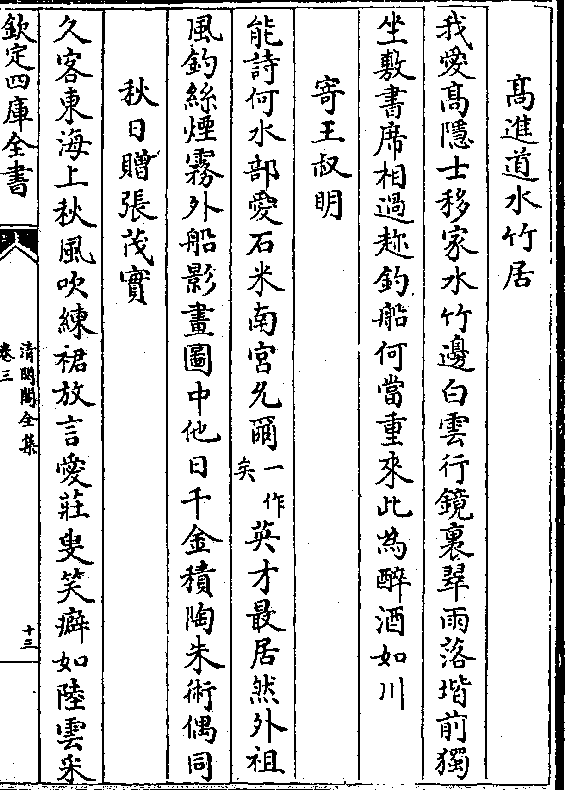 髙進道水竹居
我愛髙隱士移家水竹邊白雲行鏡裏翠雨落堦前獨
坐敷書席相過趂釣船何當重來此為醉酒如川
寄王叔明
能詩何水部愛石米南宮允爾一作矣英才最居然外祖
風釣絲煙霧外船影畫圖中他日千金積陶朱術偶同
秋日贈張茂實
久客東海上秋風吹練裙放言愛莊叟笑癖如陸雲采
欽定四庫全書
清閟閣全集
卷三
十三